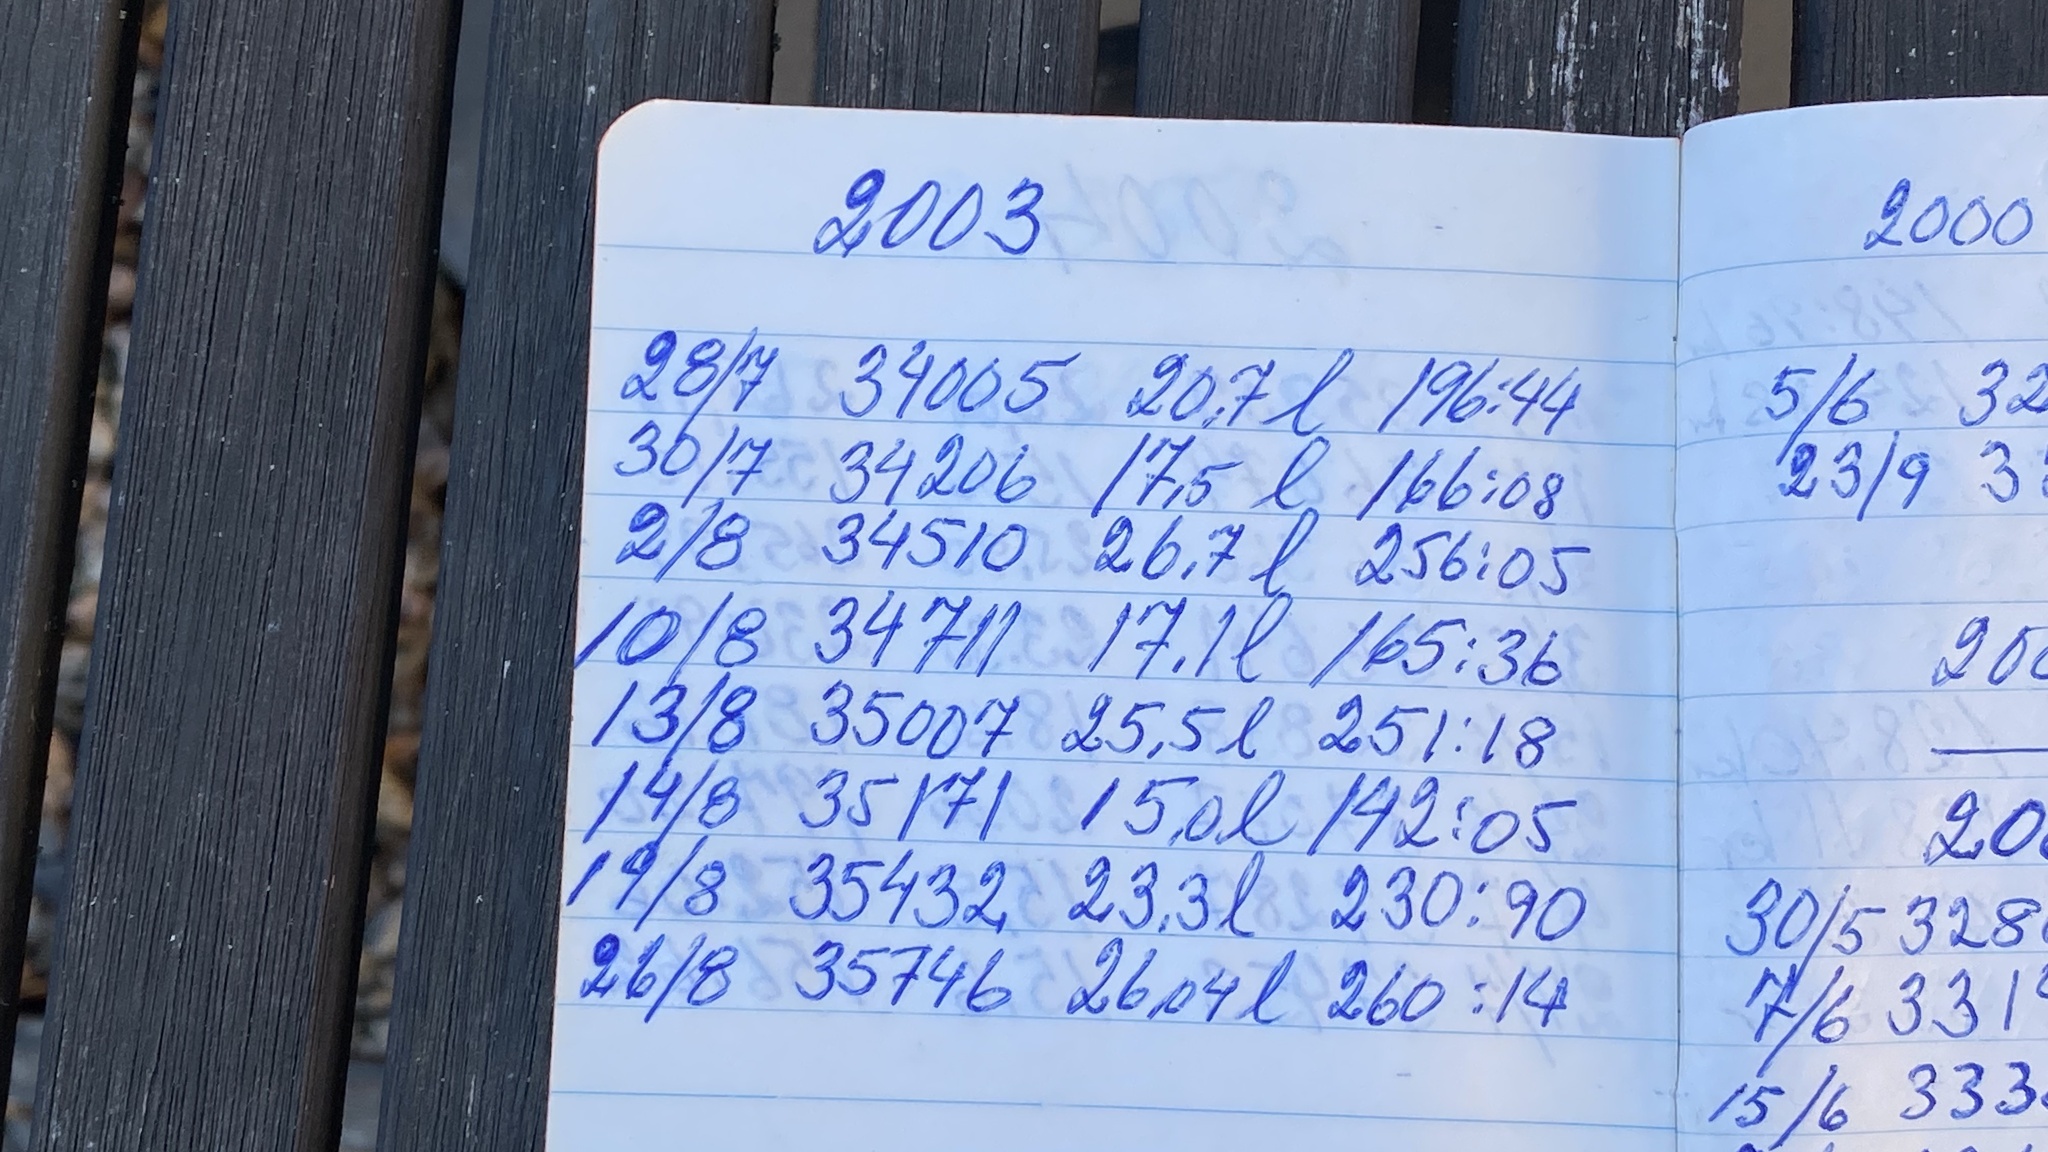 2003
28/7 34005 20,7 l 196:44
30/7 34206 17,5 l 166:08
2/8 34510 26,7 l 256:05
10/8 34711 17,1 l 165:36
13/8 35007 25,5 l 251:18
14/8 35171 15,0 l 142:05
19/8 35432 23,3 l 230:90
26/8 35746 26,04 l 260:14
2000
5/6 32
23/9 33
200
200
30/5 328
7/6 331
15/6 333